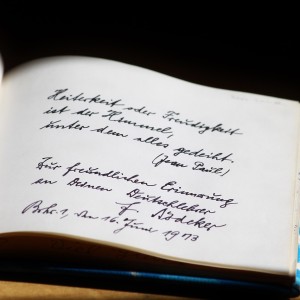 Heiterkeit oder Freudigkeit
ist der Himmel,
unter dem alles gedeiht.
(Jean Paul)
Zur freundlichen Erinnerung
an Deinen Deutschlehrer
Rödecker
den 16 Juni 1973